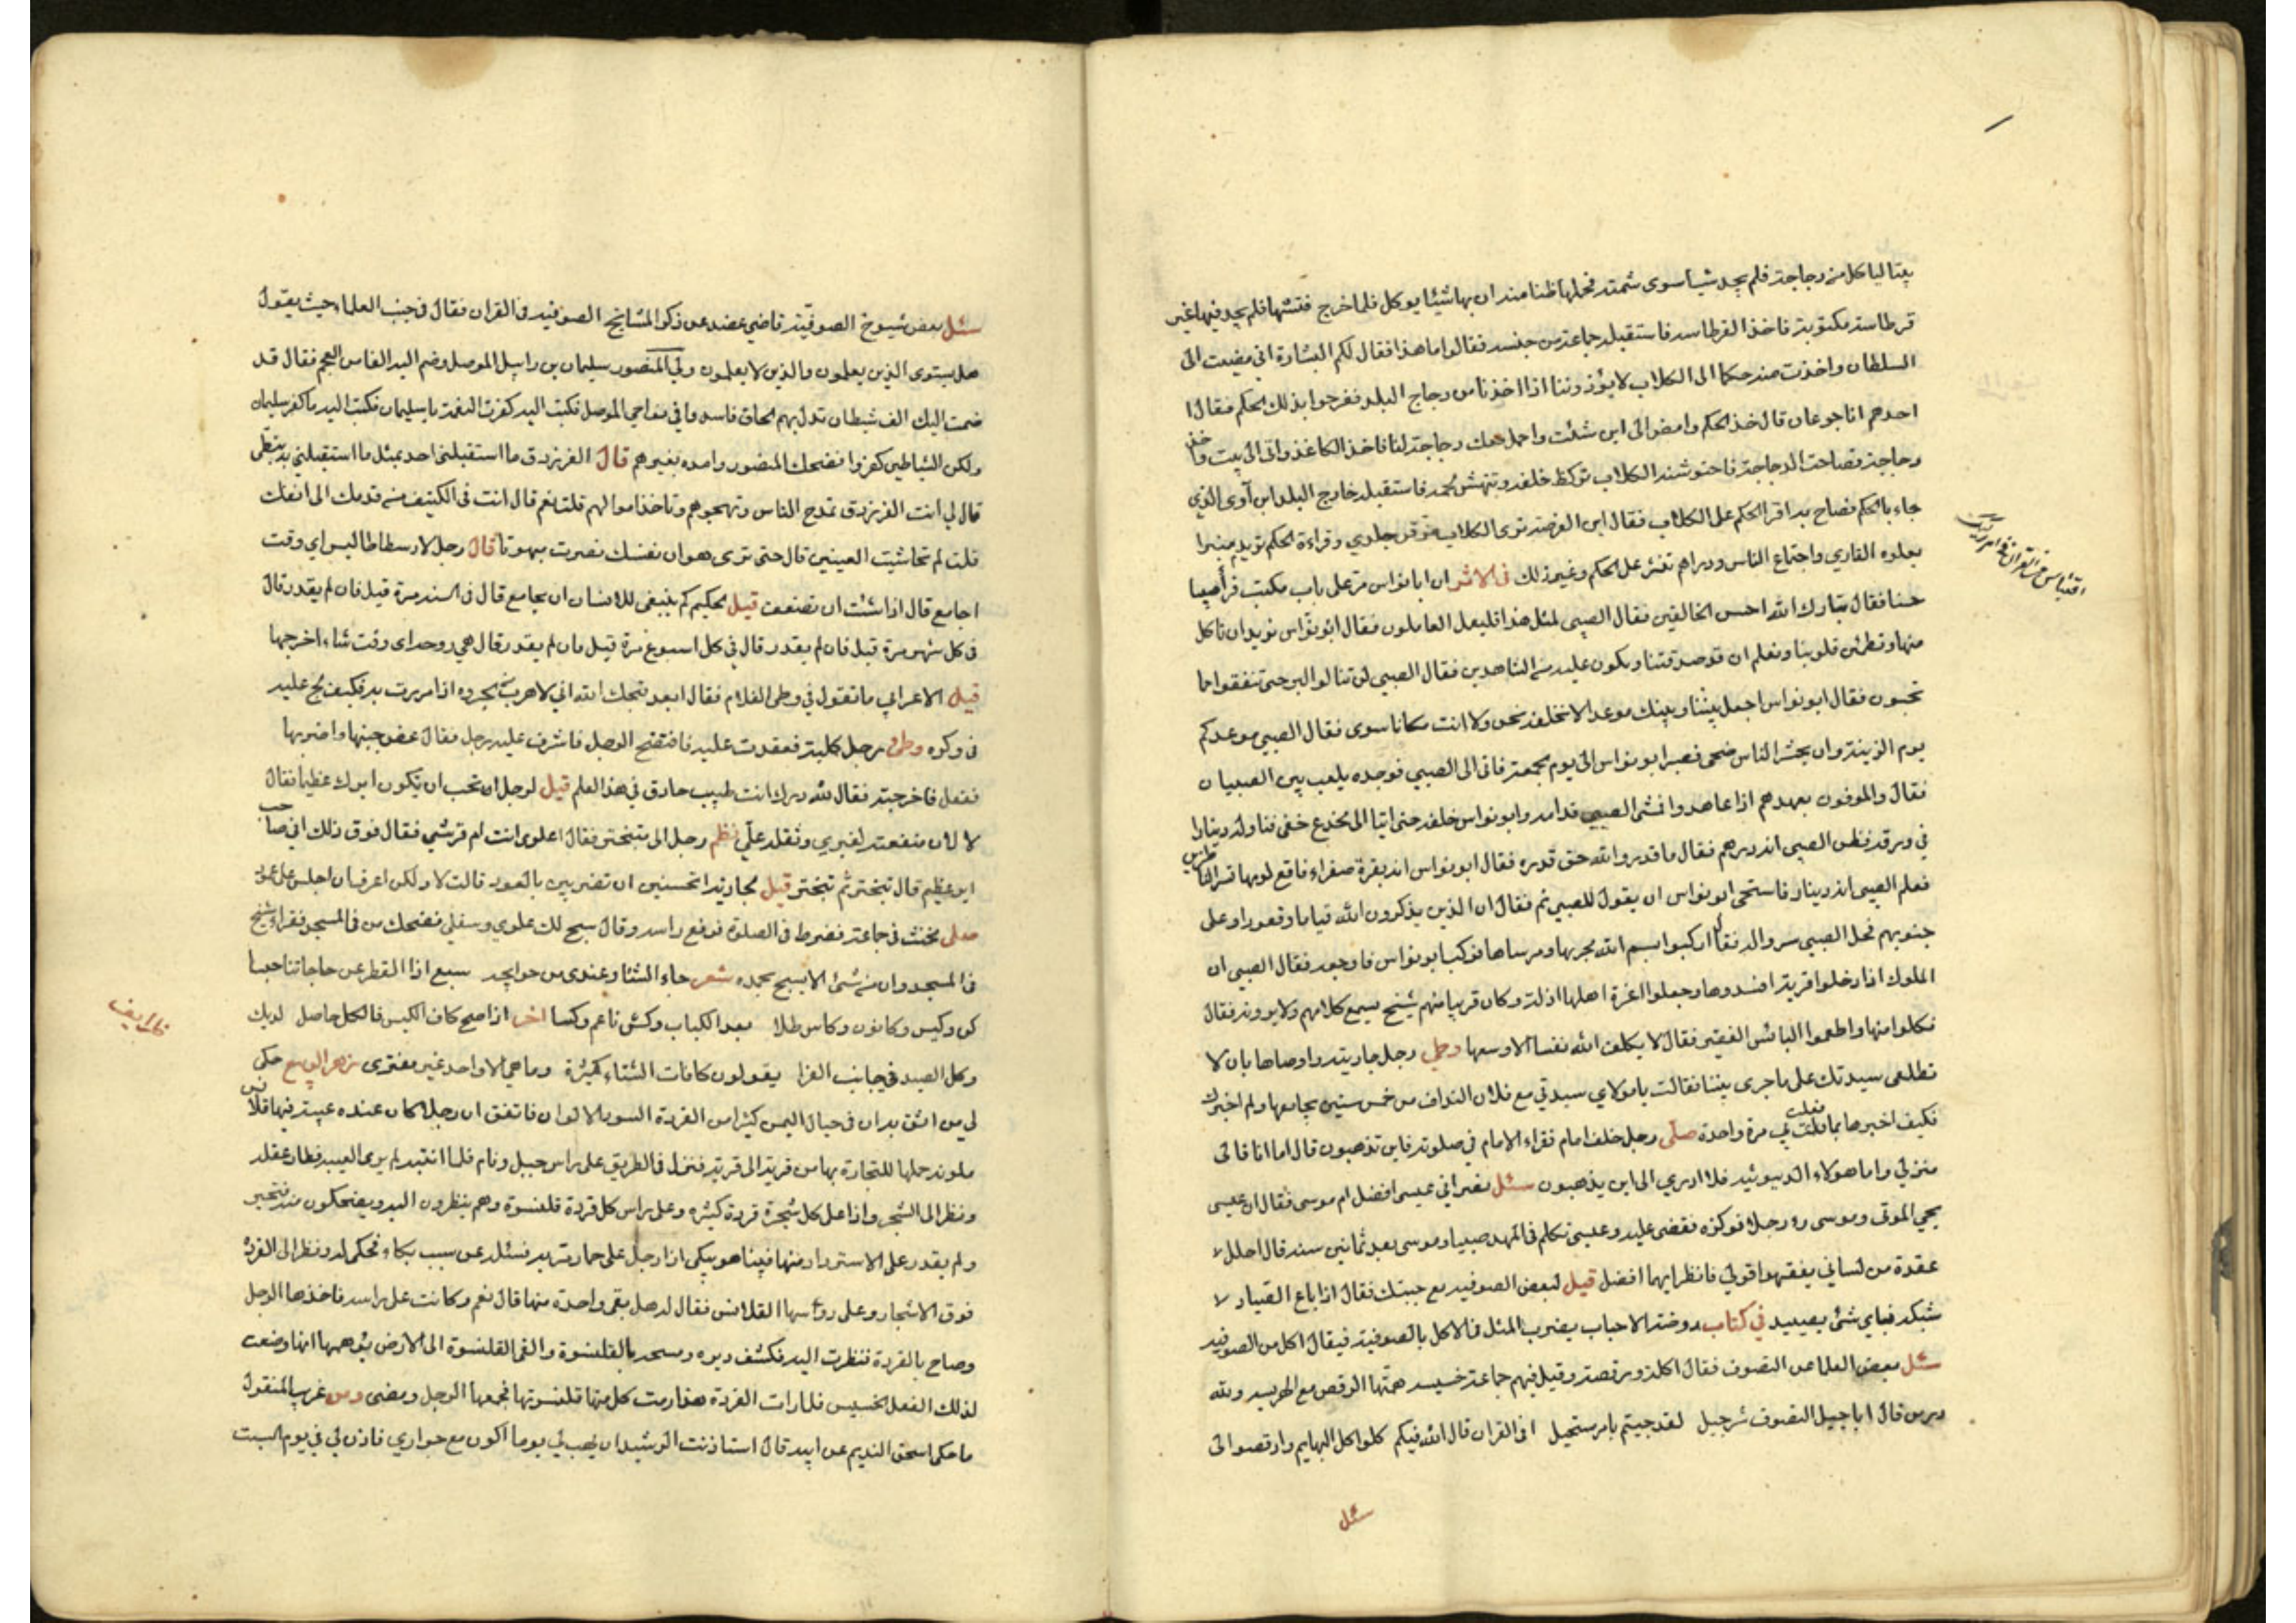 بيتا لياكل من دجاجة فلم يجد شيأ سوى شمته فحملها ظنا منه ان بها شيئا يوكل فلما اخرج فتشها فلم يجد فيها غير
قرطاسة مكتوبة فاخذ القرطاسة فاستقبله جماعة من جنسه فقالوا ما هذا فقال لكم البشارة اني مضيت الى
السلطان واخذت منه حكما الى الكلاب لا يؤذوننا اذا اخذنا من دجاج البلد ففرحوا بذلك الحكم فقال
احدهم انا جوعان قال خذ الحكم وامض الى اين شئت واحمل معك دجاجة لنا فاخذ الكاغذ واتى الى بيت فاخذ
دجاجة فصاحت الدجاجة فاحتوشته الكلاب تركض خلفه وتنهش لحمه فاستقبله خارج البلد ابن آوى الذي
جاء بالحكم فصاح به اقرا الحكم على الكلاب فقال اين الفرصة ترى الكلاب تمزق جلدي وقراءة الحكم تريد منبرا
يعلوه القاري واجتماع الناس ودراهم تنثر على الحكم وغير ذلك في الاثر ان ابا نواس مر على باب مكتب فرأى صبيا
حسنا فقال تبارك الله احسن الخالقين فقال الصبي لمثل هذا فليعمل العاملون فقال ابو نواس نريد ان ناكل
منها وتطمئن قلوبنا ونعلم ان قد صدقتنا ونكون عليه من الشاهدين فقال الصبي لن تنالوا البر حتى تنفقوا مما
تحبون فقال ابو نواس اجعل بيننا وبينك موعدا لا نخلفه نحن ولا انت مكانا سوى فقال الصبي موعدكم
يوم الزينة وان يحشر الناس ضحى فصبر ابو نواس الى يوم الجمعة فاتى الى الصبي فوجده يلعب بين الصبيان
فقال والموفون بعهدهم اذا عاهدوا فمشى الصبي قدامه وابو نواس خلفه حتى اتيا الى مخدع خفي فناوله دينارا
في ورقة فظن الصبي انه درهم فقال ما قدروا الله حق قدره فقال ابو نواس انه بقرة صفراء فاقع لونها تسر الناظرين
فعلم الصبي انه دينار فاستحى ابو نواس ان يقول للصبي نم فقال ان الذين يذكرون الله قياما وقعودا وعلى
جنوبهم فحل الصبي سرواله فقال اركبوا بسم الله مجريها ومرساها فركب ابو نواس فاوجعه فقال الصبي ان
الملوك اذا دخلوا قرية افسدوها وجعلوا اعزة اهلها اذلة وكان قريبا منهم شيخ يسمع كلامهم ولا يرونه فقال
فكلوا منها واطعموا البائس الفقير فقال لا يكلف الله نفسا الا وسعها وطي رجل جاريته واوصاها بان لا
تطلعي سيدتك على ما جرى بيننا فقالت يا مولاي سيدتي مع فلان النداف من خمس سنين يجامعها ولم اخبرك
فكيف اخبرها بما فعلت بي مرة واحدة صلى رجل خلف امام فقراء الامام في صلوته فاين تذهبون قال اما انا فالى
منزلي واما هولاء الديوثية فلا ادري الى اين يذهبون سئل نصراني عيسى افضل ام موسى فقال ان عيسى
يحيي الموتى وموسى رء رجلا فوكزه فقضى عليه وعيسى تكلم في المهد صبيا وموسى بعد ثمانين سنة قال احلل
عقدة من لساني يفقهوا قولي فانظر ايهما افضل قيل لبعض الصوفية بع جبتك فقال اذا باع الصياد
شبكته فباي شئ يصيد في كتاب روضة الاحباب يضرب المثل في الاكل بالصوفية فيقال اكل من الصوفية
سئل بعض العلما عن التصوف فقال اكلة ورقصة وقيل فيهم جماعة خسيسة همتها الرقص مع الهريسة ولله
در من قال ايا جيل التصوف شر جيل لقد جيتم بامر مستحيل افي القران قال الله فيكم كلوا اكل البهايم وارقصوا لي
سئل
اقتباس من القران
سئل بعض شيوخ الصوفية قاضي عضد عن ذكر المشايخ الصوفية في القران فقال في جنب العلماء حيث يقول
هل يستوى الذين يعلمون والذين لا يعلمون ولي المنصور سليمان بن راسل الموصل وضم اليه الفا من العجم فقال قد
ضمت اليك الف شيطان تذل بهم الخلق فاسدوا في نواحي الموصل فكتب اليه كفرت النعمة يا سليمان فكتب اليه ما كفر سليمان
ولكن الشياطين كفروا فضحك المنصور وامده بغيرهم قال الفرزدق ما استقبلني احد بمثل ما استقبلني به نبطي
قال لي انت الفرزدق تمدح الناس وتهجوهم وتاخذ اموالهم قلت نعم قال انت في الكنيف من قدمك الى انفك
قلت لم تحاشيت العينين قال حتى ترى هوان نفسك فصرت مبهوتا قال رجل لارسطاطاليس اي وقت
اجامع قال اذا شئت ان تضعف قيل لحكيم كم ينبغي للانسان ان يجامع قال في السنة مرة قيل فان لم يقدر قال
في كل شهر مرة قيل فان لم يقدر قال في كل اسبوع مرة قيل فان لم يقدر قال هي روحه اى وقت شاء اخرجها
قيل لاعرابي ما تقول في وطى الغلام فقال ابعد قبحك الله اني لاهرب من خروه اذا مررت به فكيف الج عليه
في وكره وطئ رجل كلبة فعقدت عليه فاشرف عليه رجل فقال عض جنبها واضربها
ففعل فاخرجته فقال لله درك انت طبيب حاذق في هذا العلم قيل لرجل ان تحب ان يكون ايرك عظيما فقال
لا لان منفعته لغيري وثقله علي نظر رجل الى متبختر فقال اعلوى انت ام قرشي فقال فوق ذلك اني صاحب
اير عظيم قال تبختر ثم تبختر قيل لجارية اتحسنين ان تضربين بالعود قالت لا ولكن اعرف ان اجلس على عود
صلى مخنث في جماعة فضرط في الصلوة فرفع راسه وقال سبح لك علوي وسفلي فضحك من في المسجد فقراء شيخ
في المسجد وان من شئ الا يسبح بحمده شعر جاء الشتا وعندى من حوايجه سبع اذا القطر عن حاجاتنا حبسا
كن وكيس وكانون وكاس طلا بعد الكباب وكس ناعم وكسا اخر اذا صح كاف الكيس فالكل حاصل لديك
وكل الصيد في جانب الفرا يقولون كافات الشتاء كثيرة وما هي الا واحد غير مفترى زهر الربيع حكى
لي من اثق به ان في جبال اليمن كثيرا من القردة السود الالوان فاتفق ان رجلا كان عنده عيبة فيها قلانس
ملونة حملها للتجارة بها من قرية الى قرية فنزل في الطريق على راس جبل ونام فلما انتبه لم ير العيبة فطار عقله
ونظر الى الشجر واذا على كل شجرة قردة كثيره وعلى راس كل قردة قلنسوة وهم ينظرون اليه ويضحكون منه فتحير
ولم يقدر على الاسترداد منها فبينا هو يبكي اذا رجل على حمار مر به فسئله عن سبب بكاء فحكى له ونظر الى القردة
فوق الاشجار وعلى رؤسها القلانس فقال له هل بقي واحدة منها قال نعم وكانت على راسه فاخذها الرجل
وصاح بالقردة فنظرت اليه فكشف دبره ومسحه بالقلنسوة والقى القلنسوة الى الارض يوهمها انها وضعت
لذلك الفعل الخسيس فلما رات القردة هذا رمت كل منها قلنسوتها فجمعها الرجل ومضى ومن غرايب المنقول
ما حكى اسحق النديم عن ابيه قال استاذنت الرشيد ان يهب لي يوما اكون مع جواري فاذن لي في يوم السبت
ظرايف